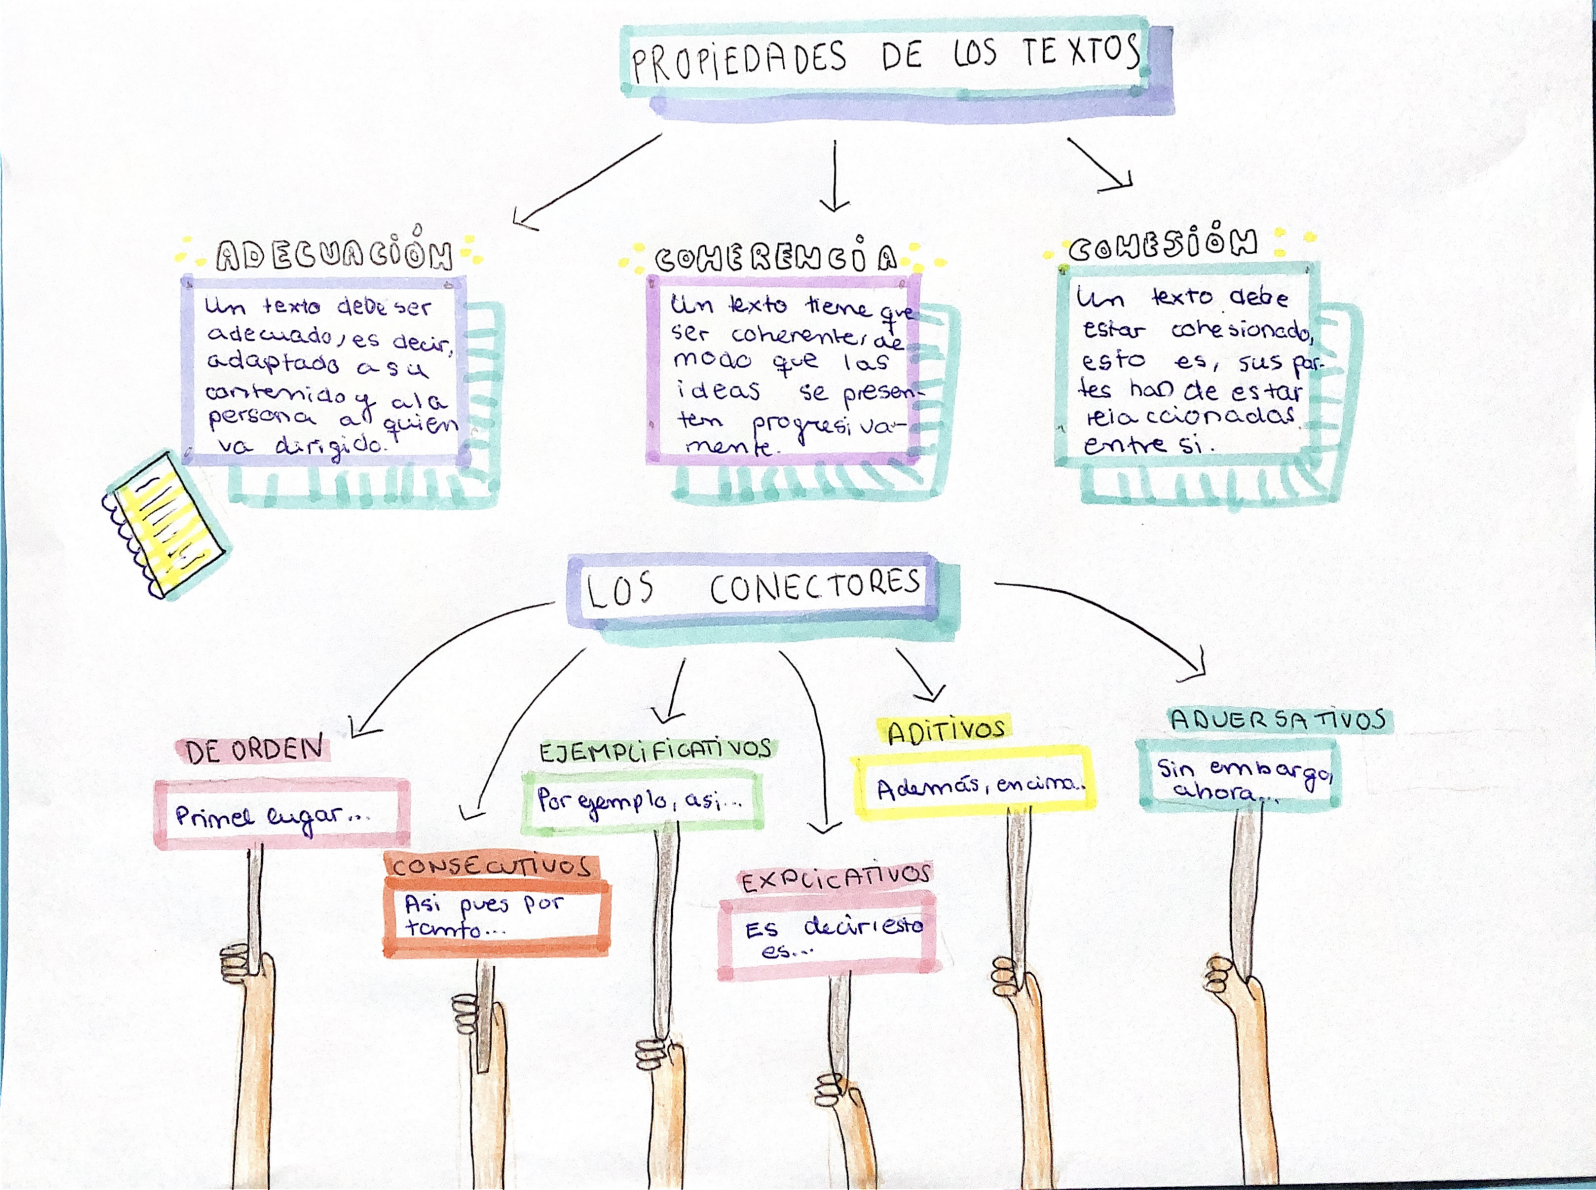 PROPIEDADES DE LOS TEXTOS
ADECUACIÓN
Un texto debe ser
adecuado, es decir,
adaptado a su
contenido y a la
persona a quien
va dirigido.
COHERENCIA
Un texto tiene que
ser coherente, de
modo que las
ideas se presen-
ten progresiva-
mente.
COHESIÓN
Un texto debe
estar cohesionado,
esto es, sus par-
tes han de estar
relaccionadas
entre si.
LOS CONECTORES
DE ORDEN
Primel lugar...
CONSECUTIVOS
Asi pues por
tanto...
EJEMPLIFICATIVOS
Por ejemplo, asi...
EXPLICATIVOS
Es decir, esto
es...
ADITIVOS
Además, encima..
ADVERSATIVOS
Sin embargo,
ahora...